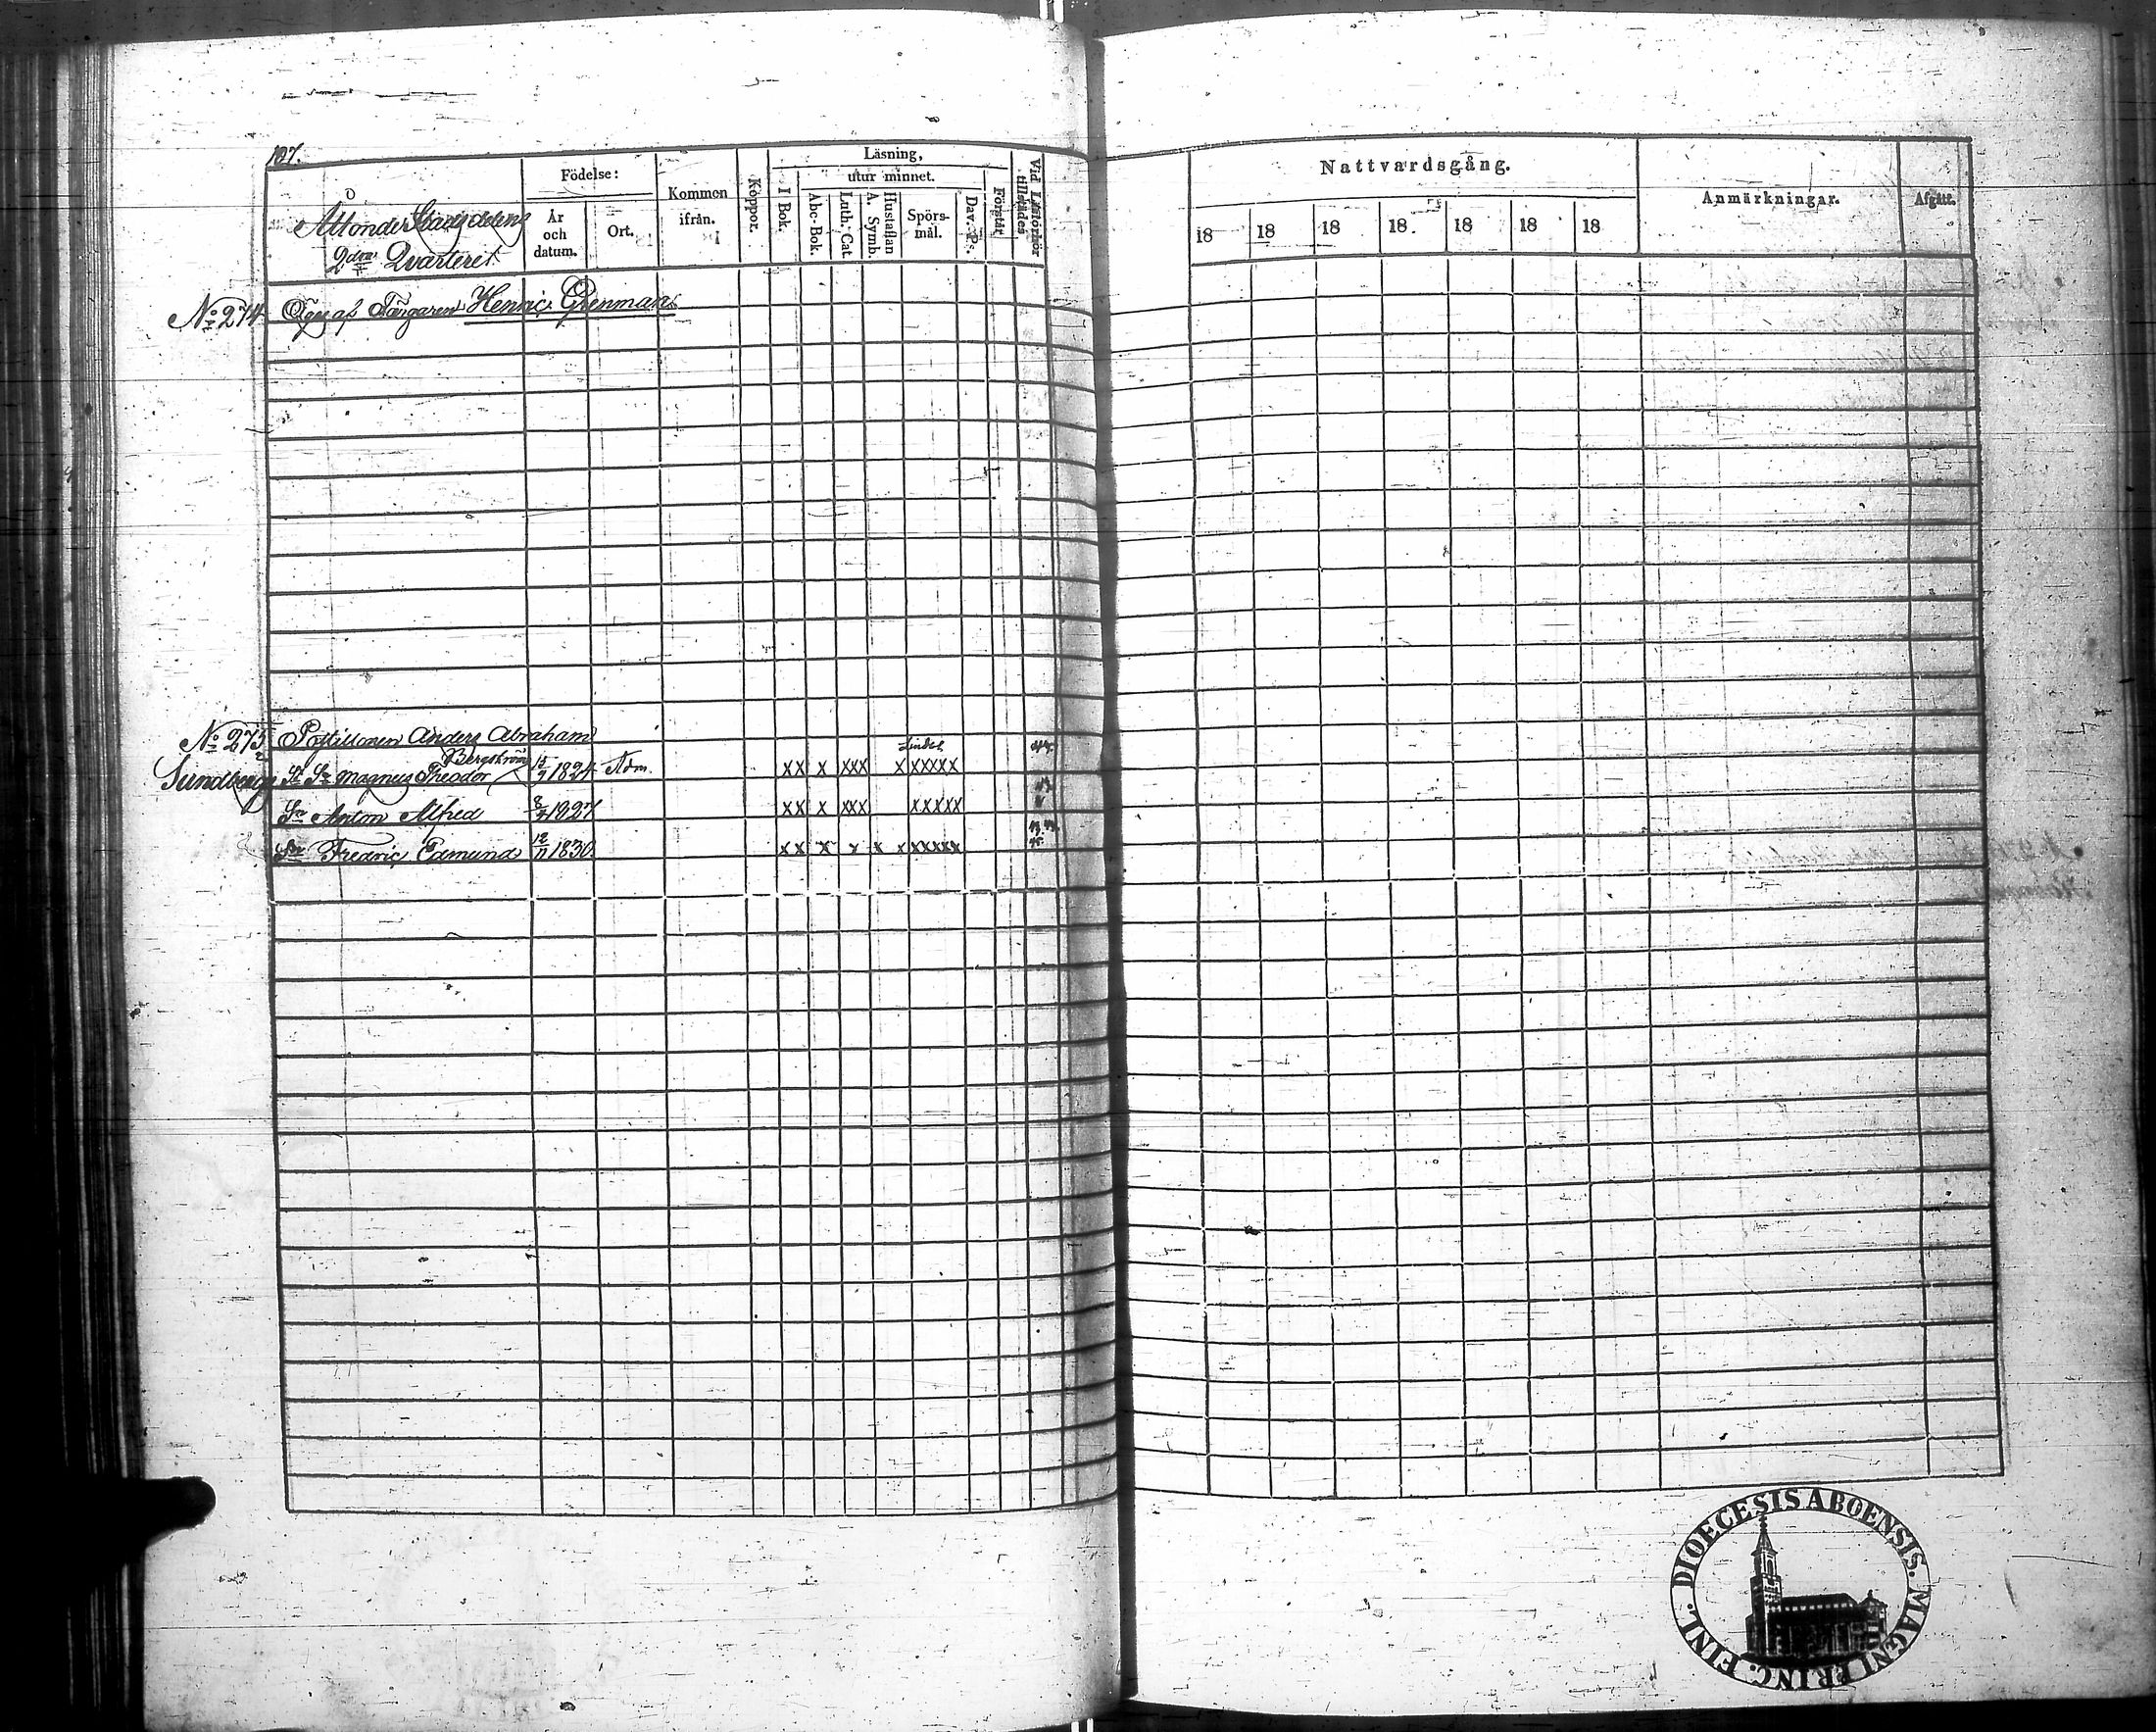 107.
Åttonde Stadsdelens
2dra Qvarteret.
Födelse:
År och datum.
Ort.
Kommen ifrån.
Koppor.
Läsning,
I Bok.
utur minnet.
Abc-Bok.
Luth. Cat.
A. Symb.
Hustaflan
Spörsmål.
Dav. Ps.
Förstår
Vid Läsförhör tillstädes
Nattvardsgång.
18 18 18 18. 18 18 18
Anmärkningar.
Afgått.
No 274 Äges af Färgaren Henric Grenman
No 275 Postillonen Anders Abraham
Sundbergs St Sn Magnus Theodor Bergström 1824 xx x xxx x xxxxx
Sn Anton Alfred 1827 xx x xxx xxxxx
Sn Fredric Edmund 12/11 1830 xx x x x x xxxxx
DIOECESIS ABOENSIS. MAGNI PRINC. FINL.